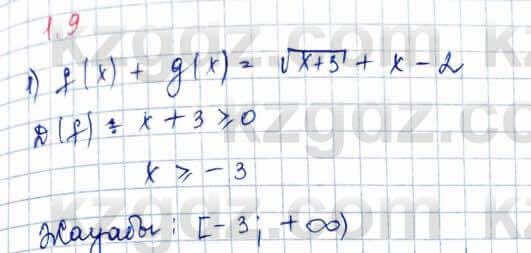 1.9
1) f(x) + g(x) = √x+3 + x - 2
D(f) = x + 3 ⩾ 0
x ⩾ -3
Жауабы: [-3; +∞)
kzgdz.com